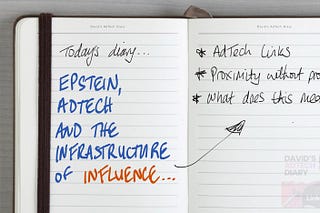 David's AdTech Diary
Today's diary...
EPSTEIN,
ADTECH
AND THE
INFRASTRUCTURE
OF INFLUENCE...
* AdTech Links
* Proximity without
* What does this
DAVID'S
ADTECH
DIARY